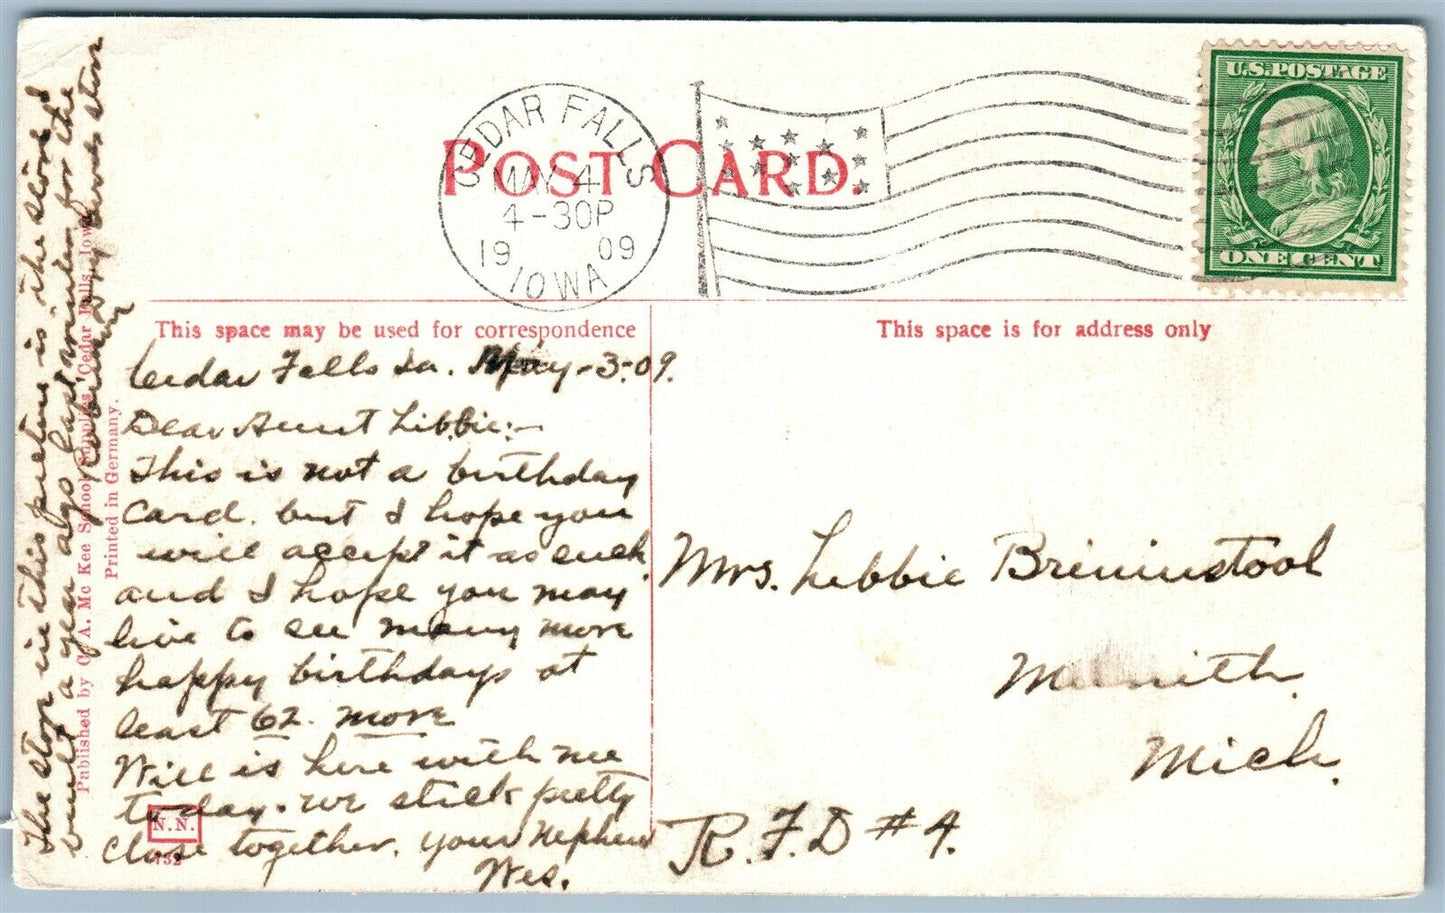 CEDAR FALLS
MAY 4
4-30P
19 09
IOWA
U.S. POSTAGE
ONE CENT
POST CARD.
This space may be used for correspondence
This space is for address only
Cedar Falls Ia. May-3-09.
Dear Aunt Libbie:-
This is not a birthday
Card. but I hope you
will accept it as such.
and I hope you may
live to see many more
happy birthdays at
least 62. more
Will is here with me
to day. we stick pretty
close together. your Nephew
Wes.
The store in this picture is the store I
built a year ago last winter for the
dry goods store
Published by C. A. Mc Kee School Supplies, Cedar Falls, Iowa.
Printed in Germany.
N.N.
132
Mrs. Libbie Breininstool
Munith.
Mich.
R.F.D #4.